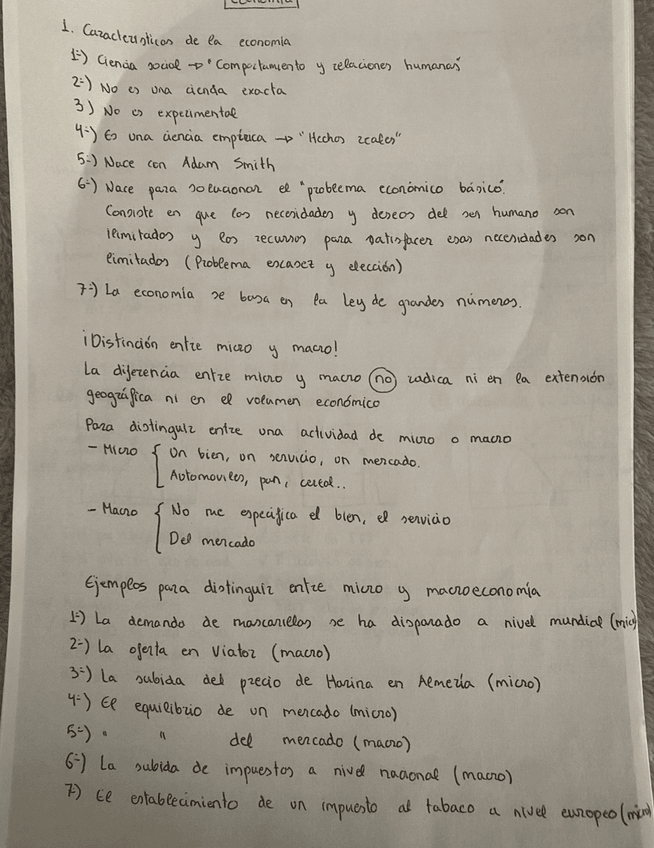 Economía
1. Características de la economía
1-) Ciencia social → "Comportamiento y relaciones humanas"
2-) No es una ciencia exacta
3) No es experimental
4-) Es una ciencia empírica → "Hechos reales"
5-) Nace con Adam Smith
6-) Nace para solucionar el "problema económico básico".
Consiste en que las necesidades y deseos del ser humano son
ilimitados y los recursos para satisfacer esas necesidades son
limitados (Problema escasez y elección)
7-) La economía se basa en la Ley de grandes números.
¡Distinción entre micro y macro!
La diferencia entre micro y macro no radica ni en la extensión
geográfica ni en el volumen económico
Para distinguir entre una actividad de micro o macro
- Micro { Un bien, un servicio, un mercado.
Automoviles, pan, cereal..
- Macro { No me especifica el bien, el servicio
Del mercado
Ejemplos para distinguir entre micro y macroeconomía
1-) La demanda de mascarillas se ha disparado a nivel mundial (micro)
2-) La oferta en Viator (macro)
3-) La subida del precio de Harina en Almería (micro)
4-) El equilibrio de un mercado (micro)
5-) " " del mercado (macro)
6-) La subida de impuestos a nivel nacional (macro)
7) El establecimiento de un impuesto al tabaco a nivel europeo (micro)